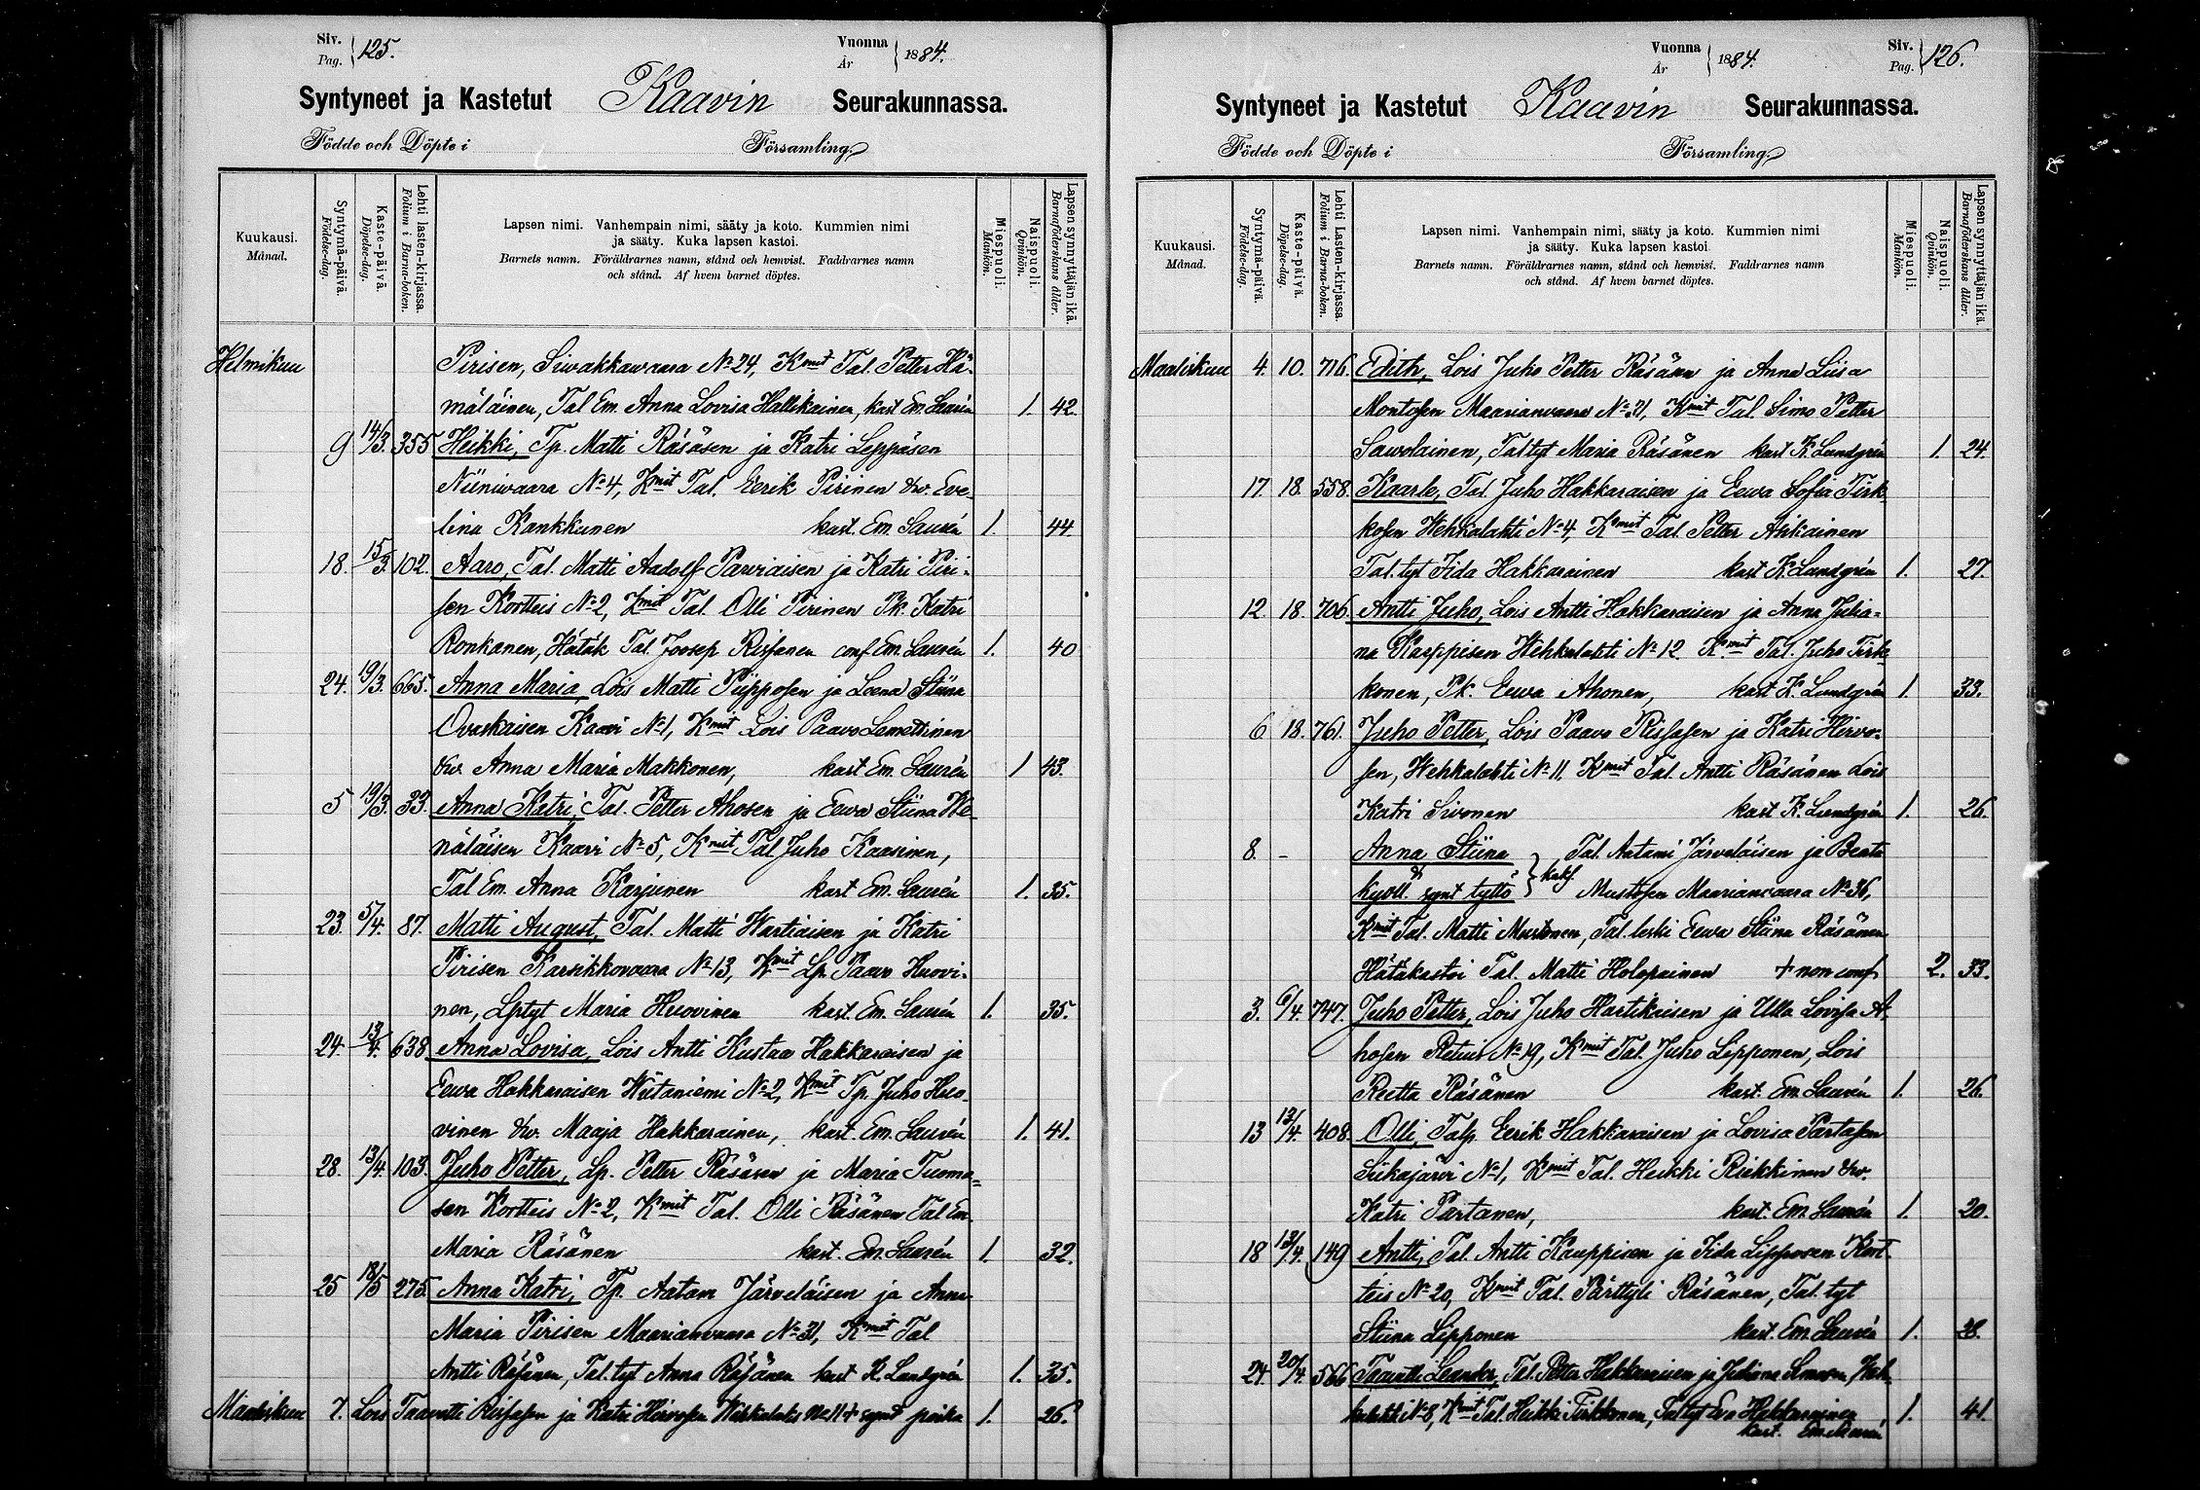 Siv. Pag. 125.
Vuonna År 1884.
Syntyneet ja Kastetut Kaavin Seurakunnassa.
Födde och Döpte i Församling
Kuukausi. Månad.
Syntymä-päivä. Födelse-dag.
Kaste-päivä. Döpelse-dag.
Lehti lasten-kirjassa. Folium i Barna-boken.
Lapsen nimi. Vanhempain nimi, sääty ja koto. Kummien nimi
ja sääty. Kuka lapsen kastoi.
Barnets namn. Föräldrarnes namn, stånd och hemvist. Faddrarnes namn
och stånd. Af hvem barnet döptes.
Miespuoli. Mankön.
Naispuoli. Qvinkön.
Lapsen synnyttäjän ikä. Barnaföderskans ålder.
Helmikuu Pirisen, Siwakkawaara No 24, Kmit Tal. Petter Hä-
mäläinen, Tal Em. Anna Lovisa Hallikainen, kast Em. Laurén 1. 42.
9 14/3. 355 Heikki, Tp. Matti Räsäsen ja Katri Leppäsen
Niiniwaara No 4, Kmit Tal. Eerik Pirinen &w. Eve-
lina Kankkunen kast. Em. Laurén 1. 44.
18. 15/3. 102. Aaro, Tal. Matti Aadolf Parviaisen ja Katri Piri-
sen Kortteis No 2, Kmit Tal. Olli Pirinen Pk. Katri
Ronkanen, Hätäk Tal. Joosep Rissanen conf Em. Laurén 1. 40
24. 19/3. 665. Anna Maria, Lois Matti Piipposen ja Leena Stiina
Ovaskaisen Kaavi No 1, Kmit Lois Paavo Lemettinen
&w. Anna Maria Makkonen, kast Em. Laurén 1 43.
5 19/3. 33. Anna Katri, Tal. Petter Ahosen ja Eewa Stiina We-
näläisen Kaavi No 5, Kmit Tal Juho Kaasinen,
Tal Em. Anna Karjunen kast Em. Laurén 1. 35.
23. 5/4. 87. Matti August, Tal. Matti Wartiaisen ja Katri
Pirisen Karsikkovaara No 13, Kmit Lp. Paavo Huovi-
nen, Lptyt Maria Huovinen kast. Em. Laurén 1. 35.
24. 13/4. 638 Anna Lovisa, Lois Antti Kustaa Hakkaraisen ja
Eewa Hakkaraisen Wiitaniemi No 2, Kmit Tp. Juho Huo-
vinen &w. Maaja Hakkarainen, kast. Em. Laurén 1. 41.
28. 13/4. 103. Juho Petter, Lp. Petter Räsäsen ja Maria Tuoma-
sen Kortteis No 2, Kmit Tal. Olli Räsänen Tal Em.
Maria Räsänen kast. Em. Laurén 1. 32.
25 18/5 275. Anna Katri, Tp. Aatam Järveläisen ja Anna
Maria Pirisen Maarianvaara No 31, Kmit Tal
Antti Räsänen, Tal. tyt Anna Räsänen kast K. Lundgrén 1. 35.
Maaliskuu 7. Lois Taavetti Rissasen ja Katri Hirvosen Wehkalaks No 11 + synt poika 1. 26.
Siv. Pag. 126.
Vuonna År 1884.
Syntyneet ja Kastetut Kaavin Seurakunnassa.
Födde och Döpte i Församling
Kuukausi. Månad.
Syntymä-päivä. Födelse-dag.
Kaste-päivä. Döpelse-dag.
Lehti Lasten-kirjassa. Folium i Barna-boken.
Lapsen nimi. Vanhempain nimi, sääty ja koto. Kummien nimi
ja sääty. Kuka lapsen kastoi.
Barnets namn. Föräldrarnes namn, stånd och hemvist. Faddrarnes namn
och stånd. Af hvem barnet döptes.
Miespuoli. Mankön.
Naispuoli. Qvinkön.
Lapsen synnyttäjän ikä. Barnaföderskans ålder.
Maaliskuu 4. 10. 716. Edith, Lois Juho Petter Räsäsen ja Anna Liisa
Montosen Maarianvaara No 31, Kmit Tal. Simo Petter
Sawolainen, Tal tyt Maria Räsänen kast K. Lundgrén 1. 24.
17. 18. 558. Kaarle, Tal. Juho Hakkaraisen ja Eewa Sofia Tirk-
kosen Wehkalahti No 4, Kmit Tal. Petter Asikainen
Tal. tyt Iida Hakkarainen kast K. Lundgrén 1. 27.
12. 18. 706. Antti Juho, Lois Antti Hakkaraisen ja Anna Julia-
na Karppisen Wehkalahti No 12. Kmit Tal. Juho Tirk-
konen, Pk. Eewa Ahonen, kast K. Lundgrén 1. 33.
6 18. 761. Juho Petter, Lois Paavo Rissasen ja Katri Hirvo-
sen, Wehkalahti No 11. Kmit Tal. Antti Räsänen Lois
Katri Sivonen kast K. Lundgrén 1. 26.
8. - Anna Stiina Tal. Aatami Järveläisen ja Beata
& kuoll. synt tyttö kaks. Mustosen Maarianvaara No 36,
Kmit Tal. Matti Mustonen, Tal. leski Eewa Stiina Räsänen
Hätäkastoi Tal. Matti Holopainen + non conf 2. 33.
3. 6/4. 747. Juho Petter, Lois Juho Hartikaisen ja Ulla Lovisa A-
hosen Retun No 19, Kmit Tal. Juho Lipponen, Lois
Reetta Räsänen kast. Em. Laurén 1. 26.
13 13/4. 408. Olli, Talp. Eerik Hakkaraisen ja Lovisa Partasen
Siikajärvi No 1, Kmit Tal. Heikki Riekkinen &w.
Katri Partanen, kast. Em. Laurén 1. 20.
18 13/4. 149 Antti, Tal. Antti Kauppisen ja Iida Lipposen Kort-
teis No 20, Kmit Tal. Pärttyli Räsänen, Tal. tyt
Stiina Lipponen kast. Em. Laurén 1. 28.
24. 20/4. 566 Taavetti Leander, Tal. Petter Hakkaraisen ja Juliana Weh-
kalahti No 8, Kmit Tal. Heikki Tirkkonen, Tal tyt Eva Hakkarainen 1. 41.
kast. Em. Laurén